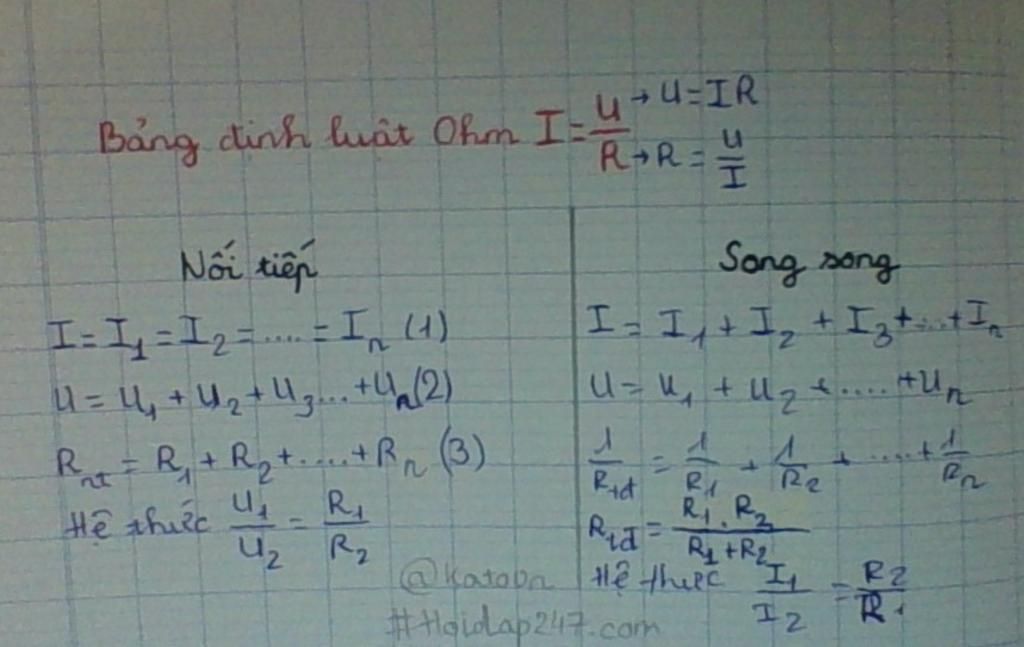 Bảng định luật Ohm I = U/R → U = IR
→ R = U/I
Nối tiếp
I = I₁ = I₂ = .... = Iₙ (1)
U = U₁ + U₂ + U₃ ... + Uₙ (2)
Rₙₜ = R₁ + R₂ + ..... + Rₙ (3)
Hệ thức U₁/U₂ = R₁/R₂
Song song
I = I₁ + I₂ + I₃ + ... + Iₙ
U = U₁ + U₂ + ..... + Uₙ
1/R_tđ = 1/R₁ + 1/R₂ + ..... + 1/Rₙ
R_tđ = R₁.R₂/R₁+R₂
Hệ thức I₁/I₂ = R₂/R₁
@Katobn
#Hoidap247.com